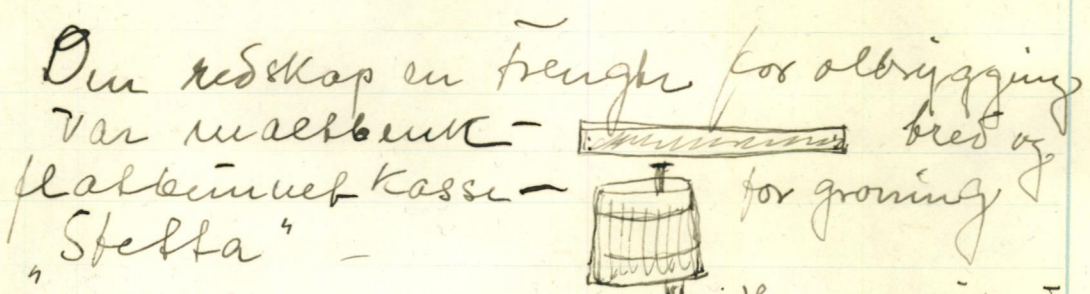 Den redskap en trengte for ølbrygging
var maltbenk – bred og
flatbunnet kasse – for groning
"Stetta" –